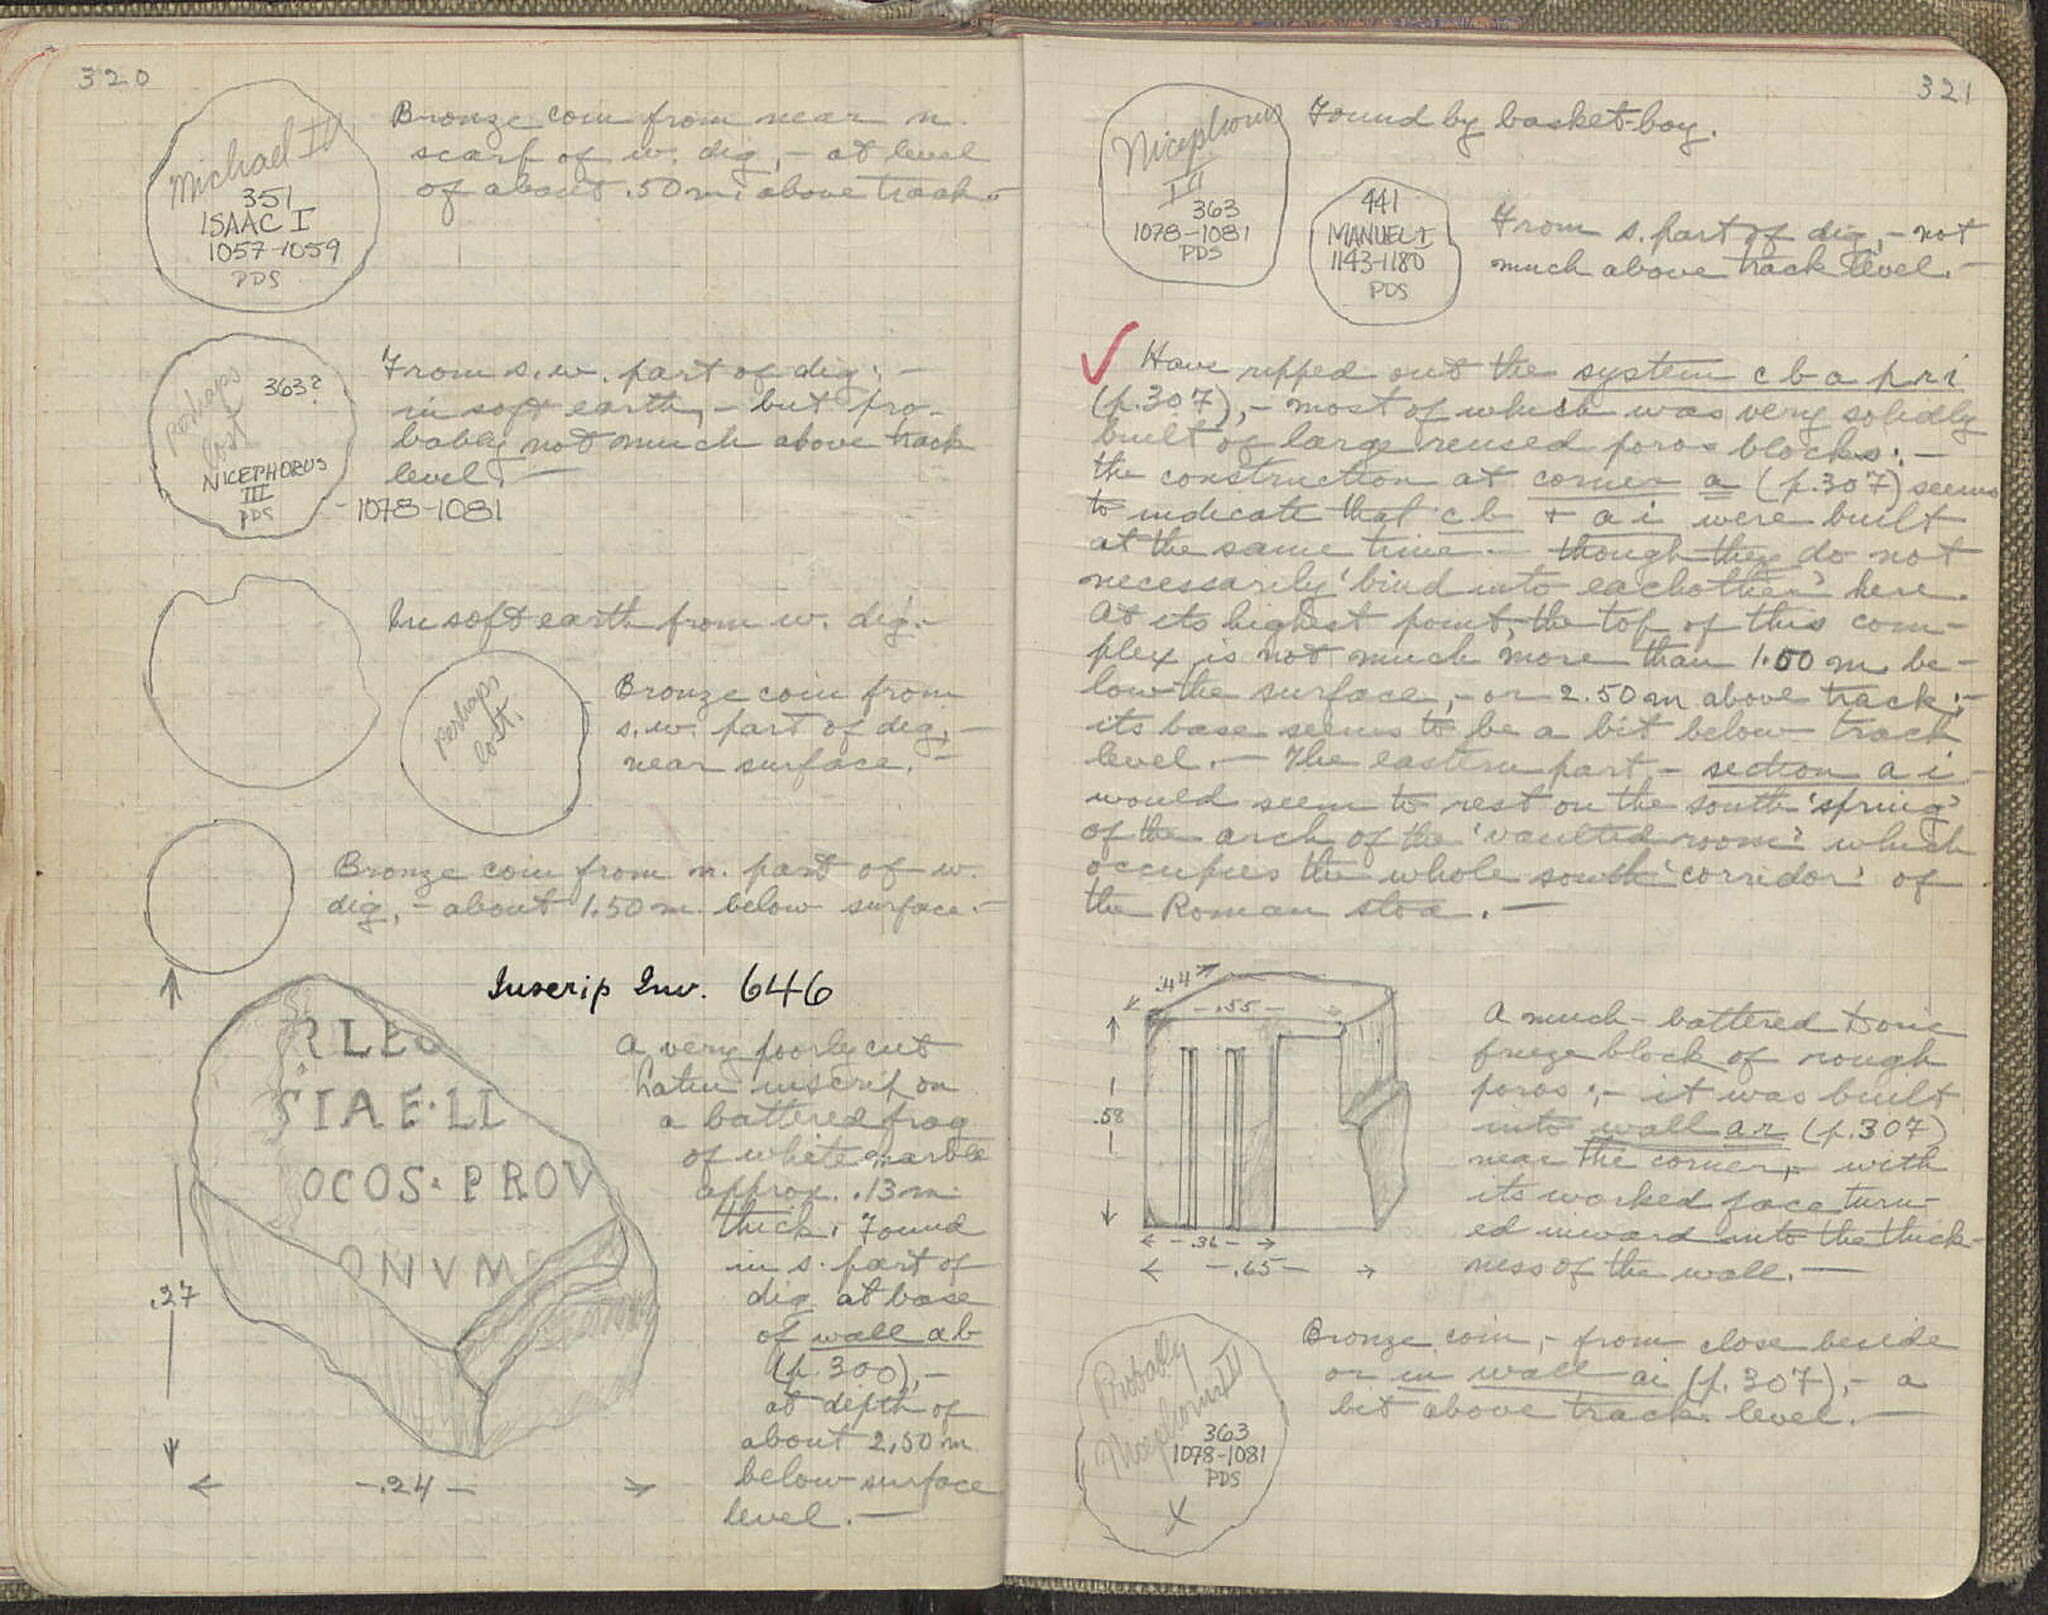 320
Michael IV
351
ISAAC I
1057-1059
PDS
Bronze coin from near n.
scarp of w. dig, - at level
of about .50 m. above track. -
perhaps
lost
363?
NICEPHORUS
III
PDS
- 1078-1081
From s.w. part of dig: -
in soft earth, - but pro-
bably not much above track
level. -
In soft earth from w. dig. -
Perhaps
lost.
Bronze coin from
s.w. part of dig, -
near surface. -
Bronze coin from n. part of w.
dig, - about 1.50 m. below surface. -
Inscrip Inv. 646
RLEG
SIAE·LI
OCOS·PROV
ONVM
.27
- .24 -
A very poorly cut
Latin inscrip on
a battered frag
of white marble
approx. .13 m.
thick. Found
in s. part of
dig at base
of wall ab
(p. 300), -
at depth of
about 2.50 m
below surface
level. -
321
Nicephorus
III
363
1078-1081
PDS
Found by basket-boy.
441
MANUEL I
1143-1180
PDS
From s. part of dig, - not
much above track level. -
✓ Have ripped out the system c b a p r i
(p. 307), - most of which was very solidly
built of large reused poros blocks: -
the construction at corner a (p. 307) seems
to indicate that cb + ai were built
at the same time - though they do not
necessarily 'bind into eachother' here.
At its highest point, the top of this com-
plex is not much more than 1.00 m. be-
low the surface, - or 2.50 m above track; -
its base seems to be a bit below track
level. - The eastern part - section a i -
would seem to rest on the south 'spring'
of the arch of the 'vaulted room' which
occupies the whole south 'corridor' of
the Roman stoa. -
.44
- .55 -
.58
- .36 -
- .65 -
A much-battered Doric
frieze block of rough
poros; - it was built
into wall ar (p. 307)
near the corner, - with
its worked face turn-
ed inward into the thick-
ness of the wall. -
Probably
Nicephorus III
363
1078-1081
PDS
X
Bronze coin, - from close beside
or in wall ai (p. 307), - a
bit above track level. -